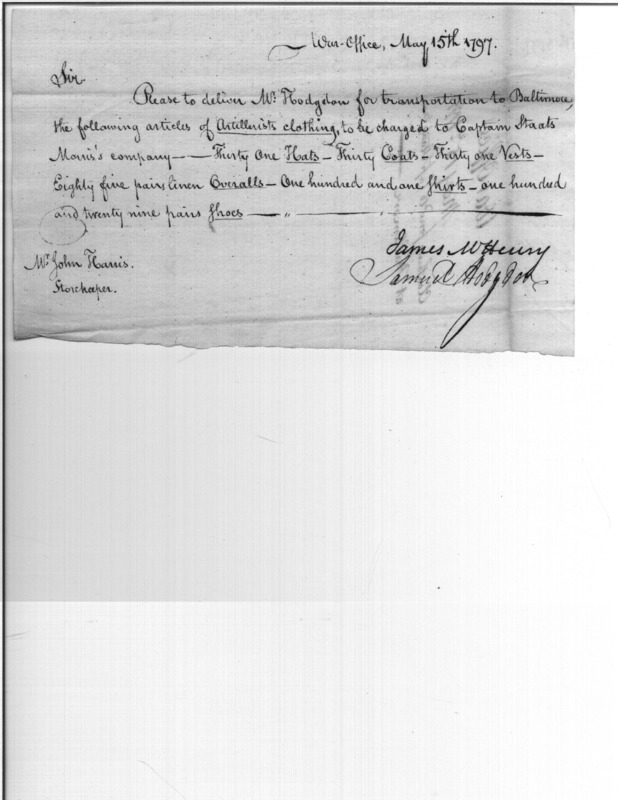 War-Office, May 15th 1797.
Sir.
Please to deliver Mr. Hodgdon for transportation to Baltimore,
the following articles of Artillerists clothing, to be charged to Captain Staats
Morris's company — Thirty One Hats — Thirty Coats — Thirty one Vests —
Eighty five pairs linen Overalls — One hundred and one Shirts — one hundred
and twenty nine pairs Shoes — " — " —
James McHenry
Samuel Hodgdon
Mr. John Harris.
Storekeeper.